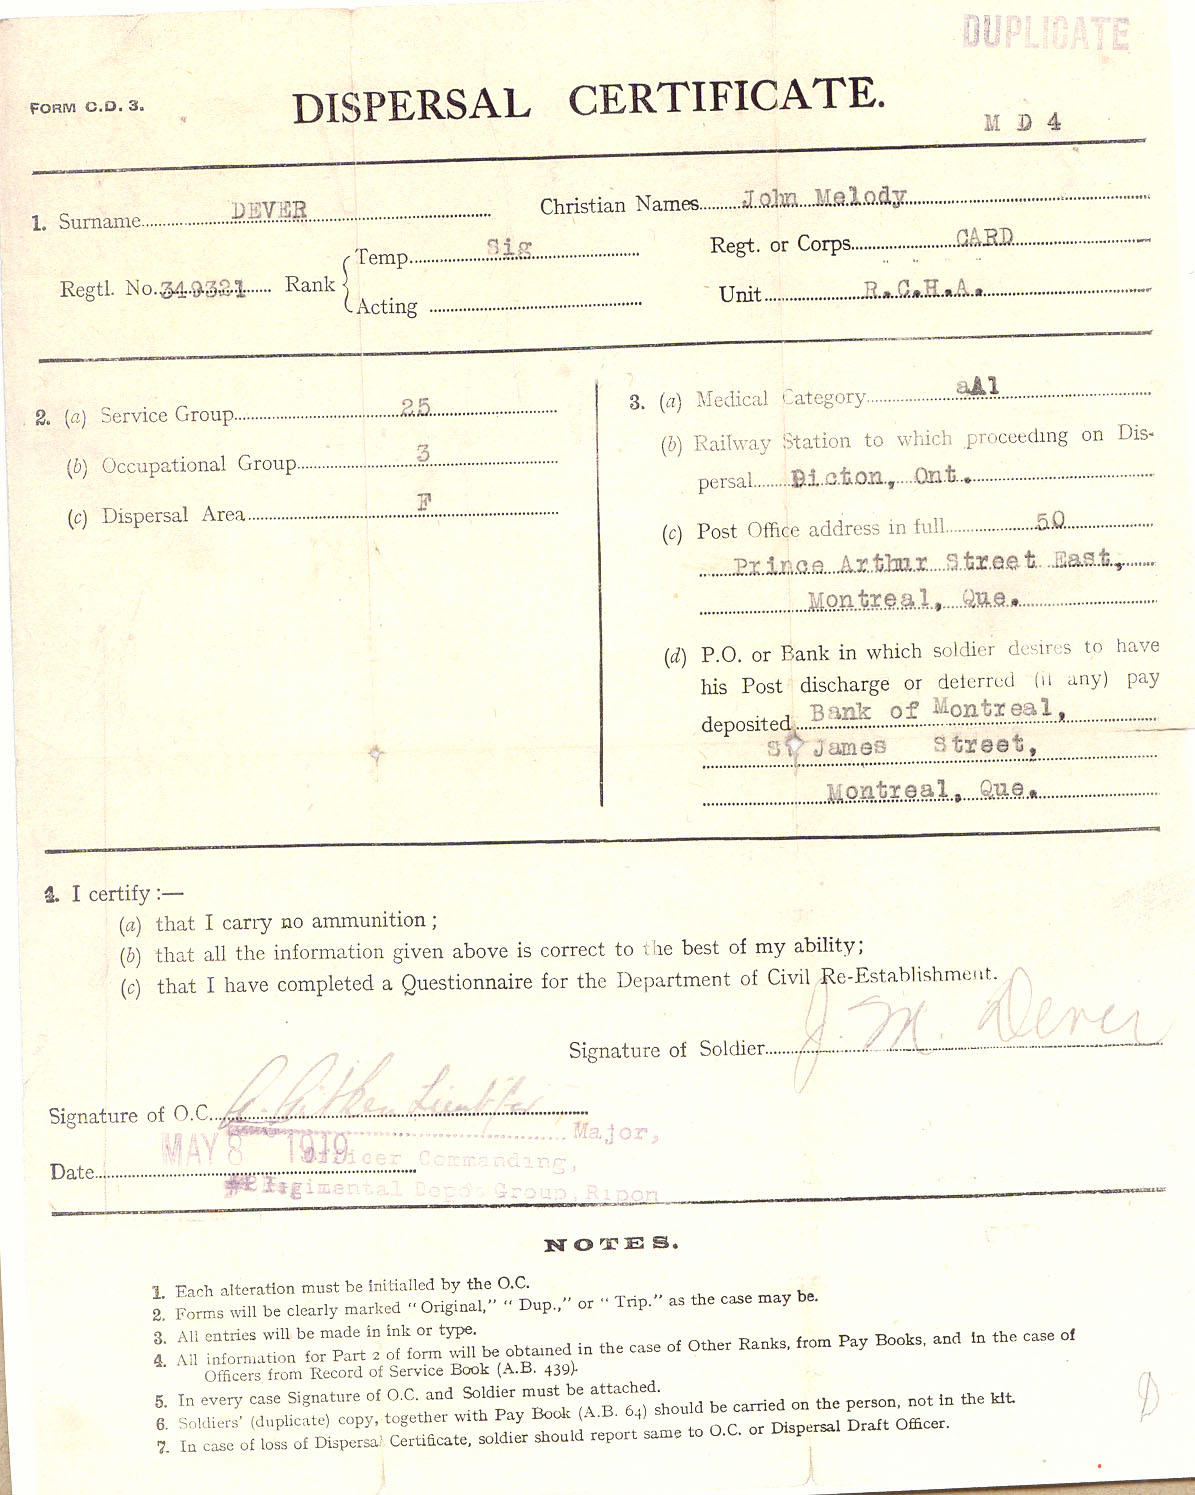 DUPLICATE
FORM C.D. 3.
DISPERSAL CERTIFICATE.
M D 4
1. Surname DEVER Christian Names John Melody
Regtl. No. 349321 Rank Temp. Sig Regt. or Corps CARD
Acting Unit R.C.H.A.
2. (a) Service Group 25
(b) Occupational Group 3
(c) Dispersal Area F
3. (a) Medical Category aA1
(b) Railway Station to which proceeding on Dis-
persal Picton, Ont.
(c) Post Office address in full 50
Prince Arthur Street East,
Montreal, Que.
(d) P.O. or Bank in which soldier desires to have
his Post discharge or deferred (if any) pay
deposited Bank of Montreal,
St James Street,
Montreal, Que.
4. I certify :—
(a) that I carry no ammunition ;
(b) that all the information given above is correct to the best of my ability;
(c) that I have completed a Questionnaire for the Department of Civil Re-Establishment.
Signature of Soldier J. M. Dever
Signature of O.C. A. Aitken Lieut for
Major,
Date MAY 8 1919
Officer Commanding,
Regimental Depot Group, Ripon
NOTES.
1. Each alteration must be initialled by the O.C.
2. Forms will be clearly marked "Original," "Dup.," or "Trip." as the case may be.
3. All entries will be made in ink or type.
4. All information for Part 2 of form will be obtained in the case of Other Ranks, from Pay Books, and in the case of
Officers from Record of Service Book (A.B. 439).
5. In every case Signature of O.C. and Soldier must be attached.
6. Soldiers' (duplicate) copy, together with Pay Book (A.B. 64) should be carried on the person, not in the kit.
7. In case of loss of Dispersal Certificate, soldier should report same to O.C. or Dispersal Draft Officer.